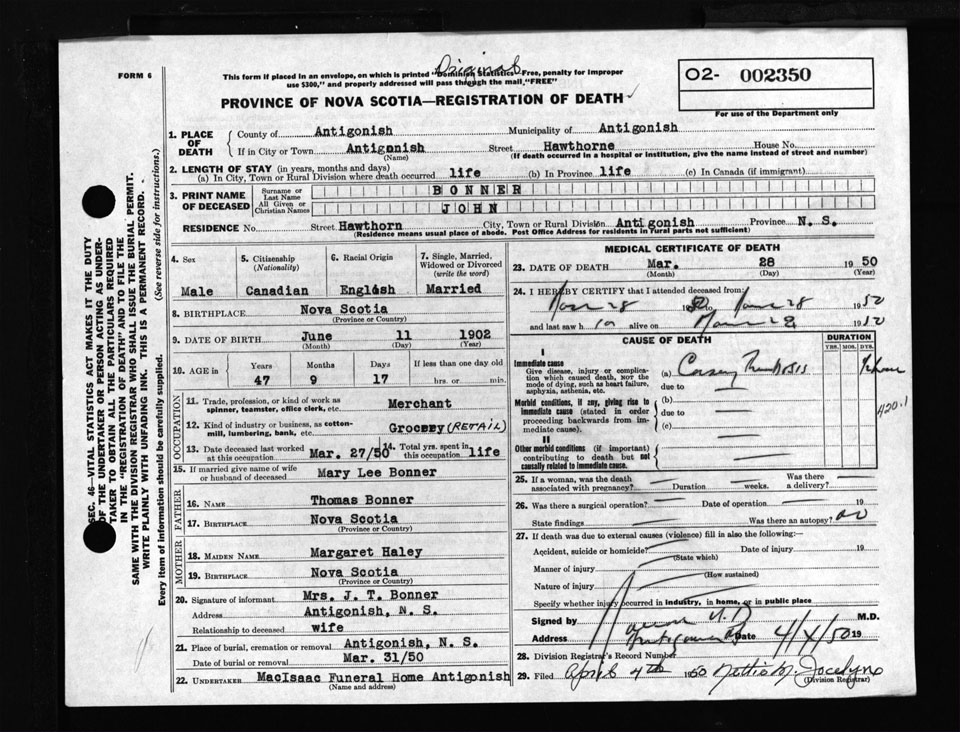 Original
FORM 6
This form if placed in an envelope, on which is printed "Dominion Statistics—Free, penalty for improper
use $300," and properly addressed will pass through the mail "FREE"
O2- 002350
For use of the Department only
PROVINCE OF NOVA SCOTIA—REGISTRATION OF DEATH ✓
1. PLACE OF DEATH
County of Antigonish Municipality of Antigonish
If in City or Town Antigonish Street Hawthorne House No.
(Name) (If death occurred in a hospital or institution, give the name instead of street and number)
2. LENGTH OF STAY (in years, months and days)
(a) In City, Town or Rural Division where death occurred life (b) In Province life (c) In Canada (if immigrant)
3. PRINT NAME OF DECEASED
Surname or Last Name BONNER
All Given or Christian Names JOHN
RESIDENCE No. Street Hawthorn City, Town or Rural Division Antigonish Province N. S.
(Residence means usual place of abode. Post Office Address for residents in rural parts not sufficient)
4. Sex
Male
5. Citizenship
(Nationality)
Canadian
6. Racial Origin
English
7. Single, Married, Widowed or Divorced
(write the word)
Married
8. BIRTHPLACE Nova Scotia
(Province or Country)
9. DATE OF BIRTH June 11 1902
(Month) (Day) (Year)
10. AGE in Years Months Days If less than one day old
47 9 17 hrs. or min.
OCCUPATION
11. Trade, profession, or kind of work as
spinner, teamster, office clerk, etc. Merchant
12. Kind of industry or business, as cotton-
mill, lumbering, bank, etc. Grocery (RETAIL)
13. Date deceased last worked
at this occupation Mar. 27/50
14. Total yrs. spent in
this occupation life
15. If married give name of wife
or husband of deceased Mary Lee Bonner
FATHER
16. NAME Thomas Bonner
17. BIRTHPLACE Nova Scotia
(Province or Country)
MOTHER
18. MAIDEN NAME Margaret Haley
19. BIRTHPLACE Nova Scotia
(Province or Country)
20. Signature of informant Mrs. J. T. Bonner
Address Antigonish, N. S.
Relationship to deceased wife
21. Place of burial, cremation or removal Antigonish, N. S.
Date of burial or removal Mar. 31/50
22. UNDERTAKER MacIsaac Funeral Home Antigonish
(Name and address)
MEDICAL CERTIFICATE OF DEATH
23. DATE OF DEATH Mar. 28 1950
(Month) (Day) (Year)
24. I HEREBY CERTIFY that I attended deceased from:
28 to 28 1950
and last saw h im alive on 1950
CAUSE OF DEATH
DURATION
YRS. MOS. DYS.
I
Immediate cause
Give disease, injury or complica-
tion which caused death, NOT the
mode of dying, such as heart failure,
asphyxia, asthenia, etc.
(a)
due to
Morbid conditions, if any, giving rise to
immediate cause (stated in order
proceeding backwards from im-
mediate cause).
(b)
due to
(c)
420.1
II
Other morbid conditions (if important)
contributing to death but not
causally related to immediate cause.
25. If a woman, was the death
associated with pregnancy? Duration weeks. Was there
a delivery?
26. Was there a surgical operation? Date of operation 19
State findings Was there an autopsy? no
27. If death was due to external causes (violence) fill in also the following:—
Accident, suicide or homicide? Date of injury 19
(State which)
Manner of injury
(How sustained)
Nature of injury
Specify whether injury occurred in industry, in home, or in public place
Signed by M.D.
Address Date 4/4/50 19
28. Division Registrar's Record Number
29. Filed April 4th 1950 Nettie M. Jocelyn
(Division Registrar)
SEC. 46—VITAL STATISTICS ACT MAKES IT THE DUTY
OF THE UNDERTAKER OR PERSON ACTING AS UNDER-
TAKER TO OBTAIN ALL THE PARTICULARS REQUIRED
IN THE "REGISTRATION OF DEATH" AND TO FILE THE
SAME WITH THE DIVISION REGISTRAR WHO SHALL ISSUE THE BURIAL PERMIT.
WRITE PLAINLY WITH UNFADING INK. THIS IS A PERMANENT RECORD.
Every item of information should be carefully supplied. (See reverse side for instructions.)